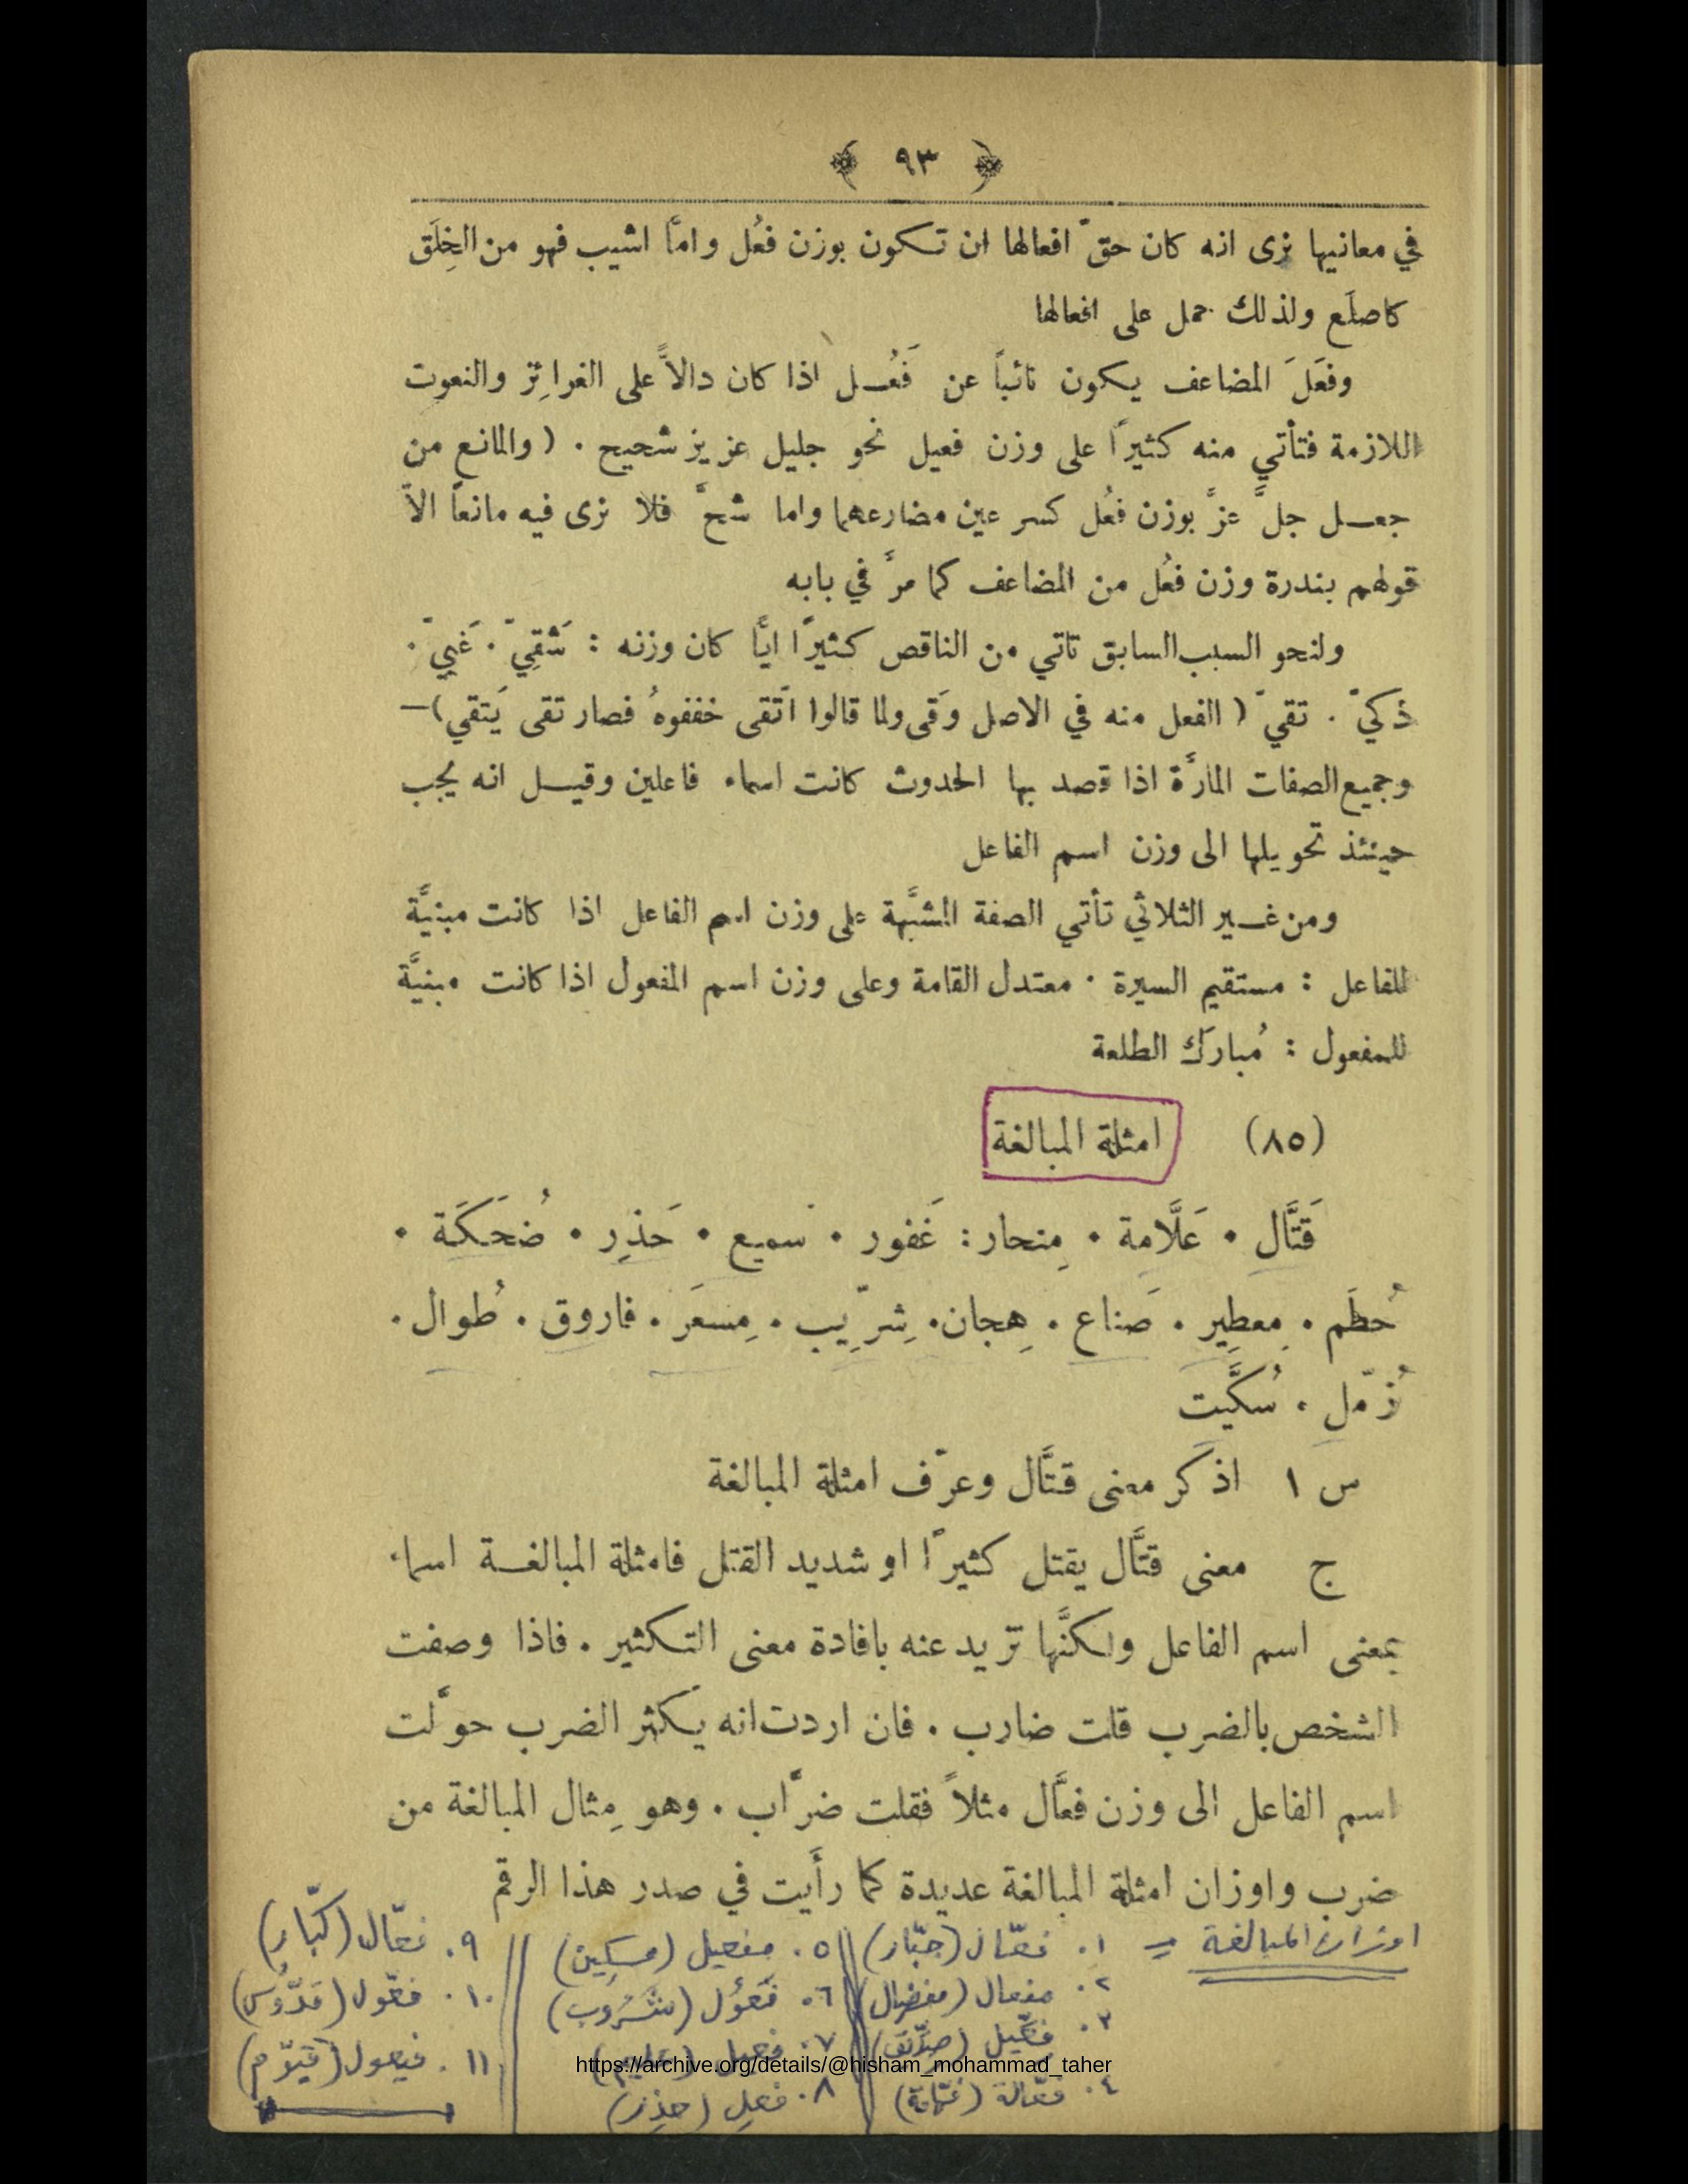 ﴿ ٩٣ ﴾
في معانيها نرى انه كان حقّ افعالها ان تكون بوزن فعُل وامَّا اشيب فهو من الخِلَق
كاصلَع ولذلك حمل على افعالها
وفعَلَ المضاعف يكون نائباً عن فَعُل اذا كان دالاًّ على الغرائِز والنعوت
اللازمة فتأتي منه كثيرًا على وزن فعيل نحو جليل عزيز شحيح . ( والمانع من
جعل جلَّ عزَّ بوزن فعُل كسر عين مضارعهما واما شحَّ فلا نرى فيه مانعاً الاَّ
قولهم بندرة وزن فعُل من المضاعف كما مرَّ في بابه
ولنحو السبب السابق تاتي من الناقص كثيرًا ايًّا كان وزنه : شَقِيّ . غَبِيّ .
ذكيّ . تقيّ ( الفعل منه في الاصل وَقى ولما قالوا اتَّقى خففوهُ فصار تقى يَتقي ) —
وجميع الصفات المارَّة اذا قصد بها الحدوث كانت اسماء فاعلين وقيل انه يجب
حينئذ تحويلها الى وزن اسم الفاعل
ومن غير الثلاثي تأتي الصفة المشبَّهة على وزن اسم الفاعل اذا كانت مبنيَّة
للفاعل : مستقيم السيرة . معتدل القامة وعلى وزن اسم المفعول اذا كانت مبنيَّة
للمفعول : مُبارَك الطلعة
(٨٥) امثلة المبالغة
قَتَّال . عَلَّامة . مِنحار : غَفور . سَميع . حَذِر . ضُحَكَة .
حُطَم . مِعطِير . صَناع . هِجان . شِرِّيب . مِسعَر . فاروق . طُوال .
زُمّل . سُكَّيت
س ١ اذكر معنى قتَّال وعرّف امثلة المبالغة
ج معنى قتَّال يقتل كثيرًا او شديد القتل فامثلة المبالغة اسماء
بمعنى اسم الفاعل ولكنَّها تزيد عنه بافادة معنى التكثير . فاذا وصفت
الشخص بالضرب قلت ضارب . فان اردت انه يكثر الضرب حوَّلت
اسم الفاعل الى وزن فعَّال مثلاً فقلت ضرَّاب . وهو مِثال المبالغة من
ضرب واوزان امثلة المبالغة عديدة كما رأَيت في صدر هذا الرقم
اوزان المبالغة
١. فعّال (جبّار)
٢. مفعال (مفضال)
٣. فِعّيل (صدّيق)
٤. فعّالة (فهّامة)
٥. مفعيل (مِسكين)
٦. فَعُول (شَرُوب)
٧. فعيل (عليم)
٨. فعِل (حذِر)
٩. فعّال (كبّار)
١٠. فعّول (قدّوس)
١١. فيعول (قيّوم)
https://archive.org/details/@hisham_mohammad_taher